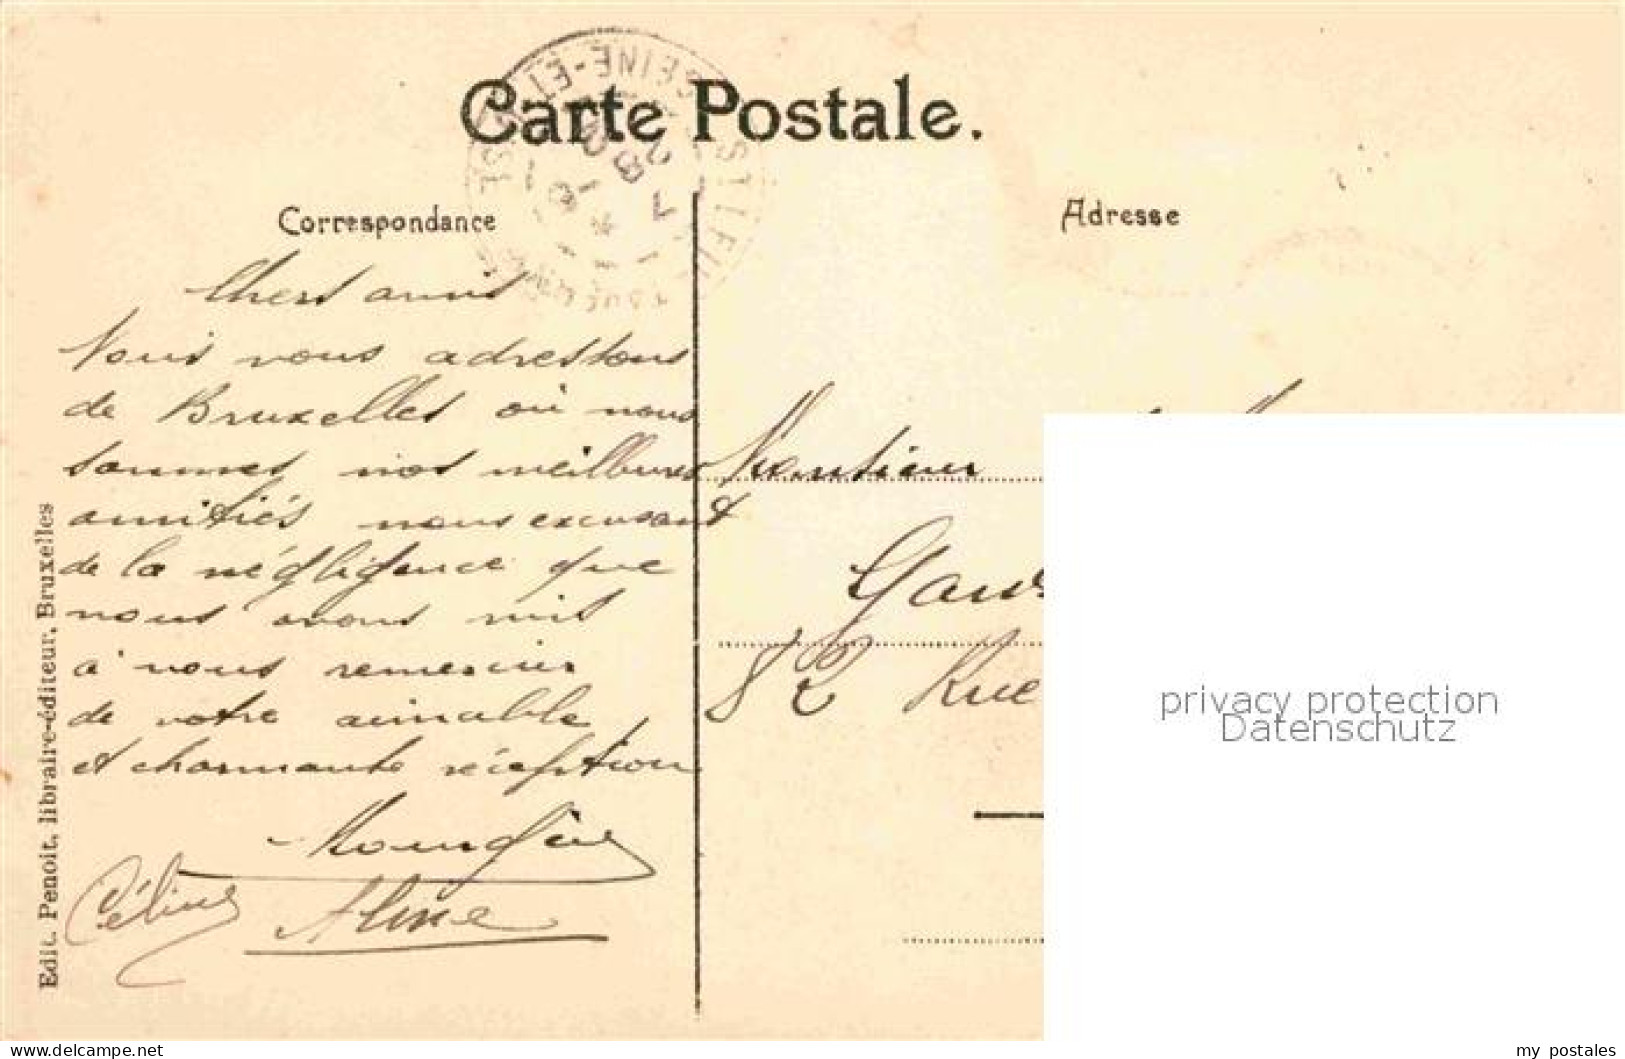 Carte Postale.
Correspondance
Adresse
Chers amis
Nous vous adressons
de Bruxelles où nous
sommes nos meilleures
amitiés nous excusant
de la négligence que
nous avons mis
à vous remercier
de votre aimable
et charmante réception
Céline
Aline
Monsieur
Rue
Edit. Penoit, libraire-éditeur, Bruxelles
SEINE-ET
privacy protection
Datenschutz
Image may be subject to copyright
my postales